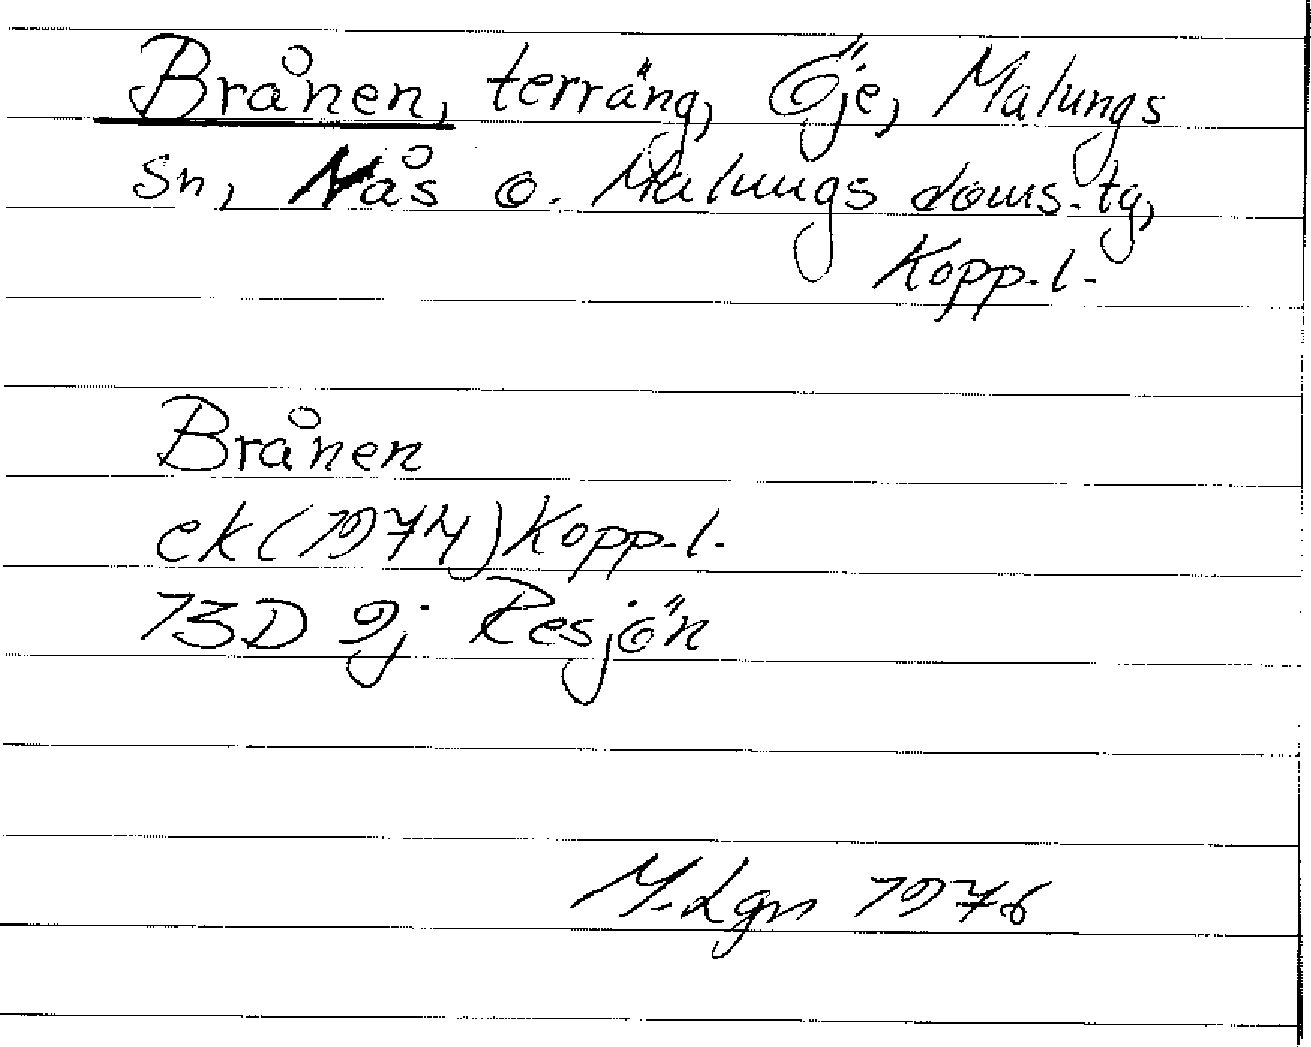 Brånen, terräng, Öje, Malungs
sn, Nås o. Malungs doms.tg,
Kopp.l.
Brånen
ek (1974) Kopp.l.
13D 9j Resjön
M.Lgn 1976